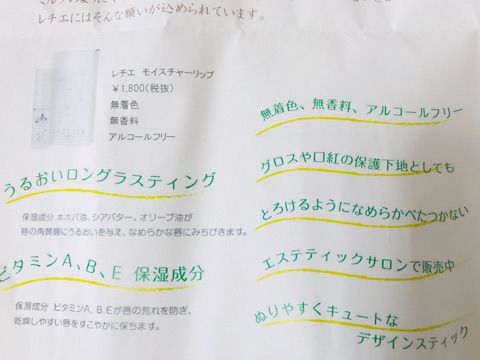 レチエにはそんな願いが込められています。
レチエ モイスチャーリップ
￥1,800(税抜)
無着色
無香料
アルコールフリー
うるおいロングラスティング
保湿成分 ホホバ油、シアバター、オリーブ油が
唇の角質層にうるおいを与え、なめらかな唇にみちびきます。
ビタミンA、B、E 保湿成分
保湿成分 ビタミンA、B、Eが唇の荒れを防ぎ、
乾燥しやすい唇をすこやかに保ちます。
無着色、無香料、アルコールフリー
グロスや口紅の保護下地としても
とろけるようになめらかべたつかない
エステティックサロンで販売中
ぬりやすくキュートな
デザインスティック